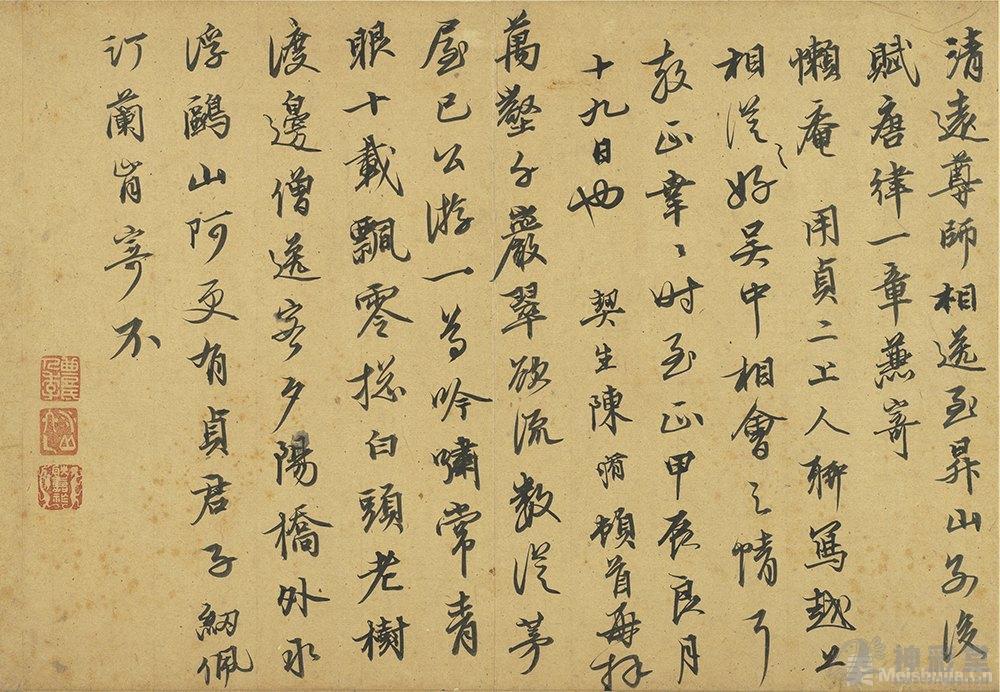 清遠尊師相送至昇山別後
賦唐律一章兼寄
懶庵 用貞二上人聊寫越上
相從之好吳中相會之情
教正幸幸時至正甲辰良月
十九日也 契生陳 頓首再拜
萬壑千巖翠欲流數從茅
屋已公游一尊吟嘯常青
眼十載飄零總白頭老樹
渡邊僧送客夕陽橋外水
浮鷗山阿更有貞君子紉佩
訂蘭肯寄不
Meishujia.cn